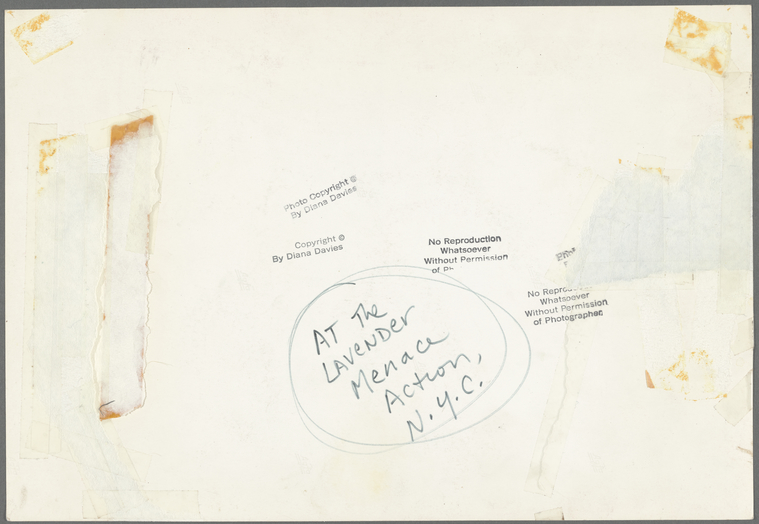 Photo Copyright ©
By Diana Davies
Copyright ©
By Diana Davies
No Reproduction
Whatsoever
Without Permission
of
No
Whatsoever
Without Permission
of Photographer
AT The
LAVENDER
Menace
Action,
N.Y.C.